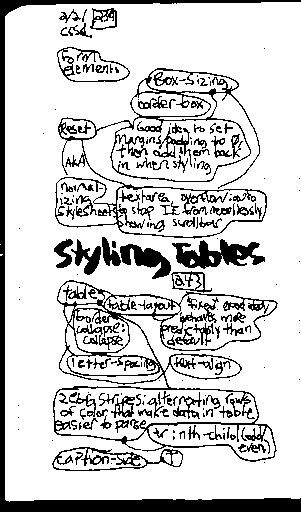 2/21 239
CSSd.
form
elements
Box-sizing
border-box
Reset
Good idea to set
margins/padding to 0,
then add them back
in when styling
AKA
normal-
izing
stylesheets
textarea, overflow:auto
to stop IE from needlessly
showing scrollbar
Styling Tables
243
table
table-layout
fixed good idea,
behaves more
predictably than
default
border
collapse:
collapse
letter-spacing
text-align
Zebra Stripes: alternating rows
of color that make data in table
easier to parse
tr:nth-child(odd/
even)
caption-side